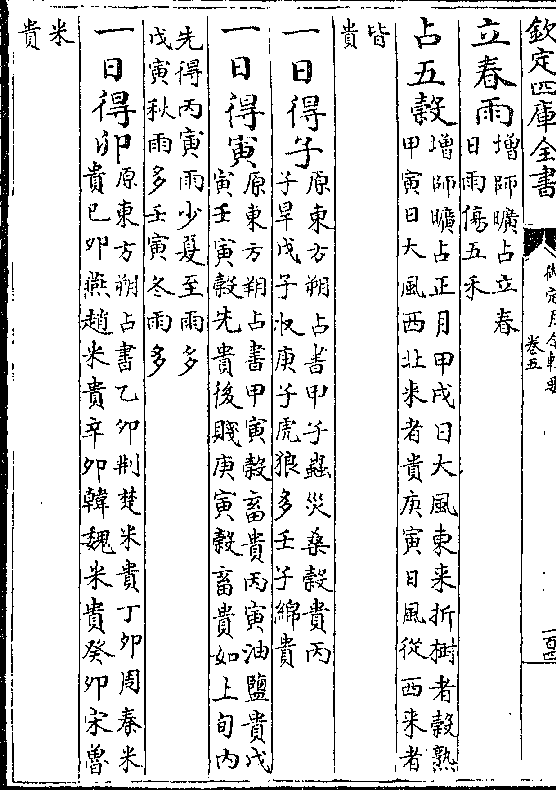 欽定四庫全書
卷五
立春雨
增師曠占立春
日雨傷五禾
占五穀
增師曠占正月甲戌日大風東来折樹者穀熟
甲寅日大風西北来者貴庚寅日風從西来者
皆
貴
一日得子
原東方朔占書甲子蟲災桑穀貴丙
子旱戊子収庚子虎狼多壬子綿貴
一日得寅
原東方朔占書甲寅穀畜貴丙寅油鹽貴戊
寅壬寅穀先貴後賤庚寅穀畜貴如上旬内
先得丙寅雨少夏至雨多
戊寅秋雨多壬寅冬雨多
一日得卯
原東方朔占書乙卯荆楚米貴丁卯周秦米
貴己卯燕趙米貴辛卯韓魏米貴癸卯宋魯
米
貴